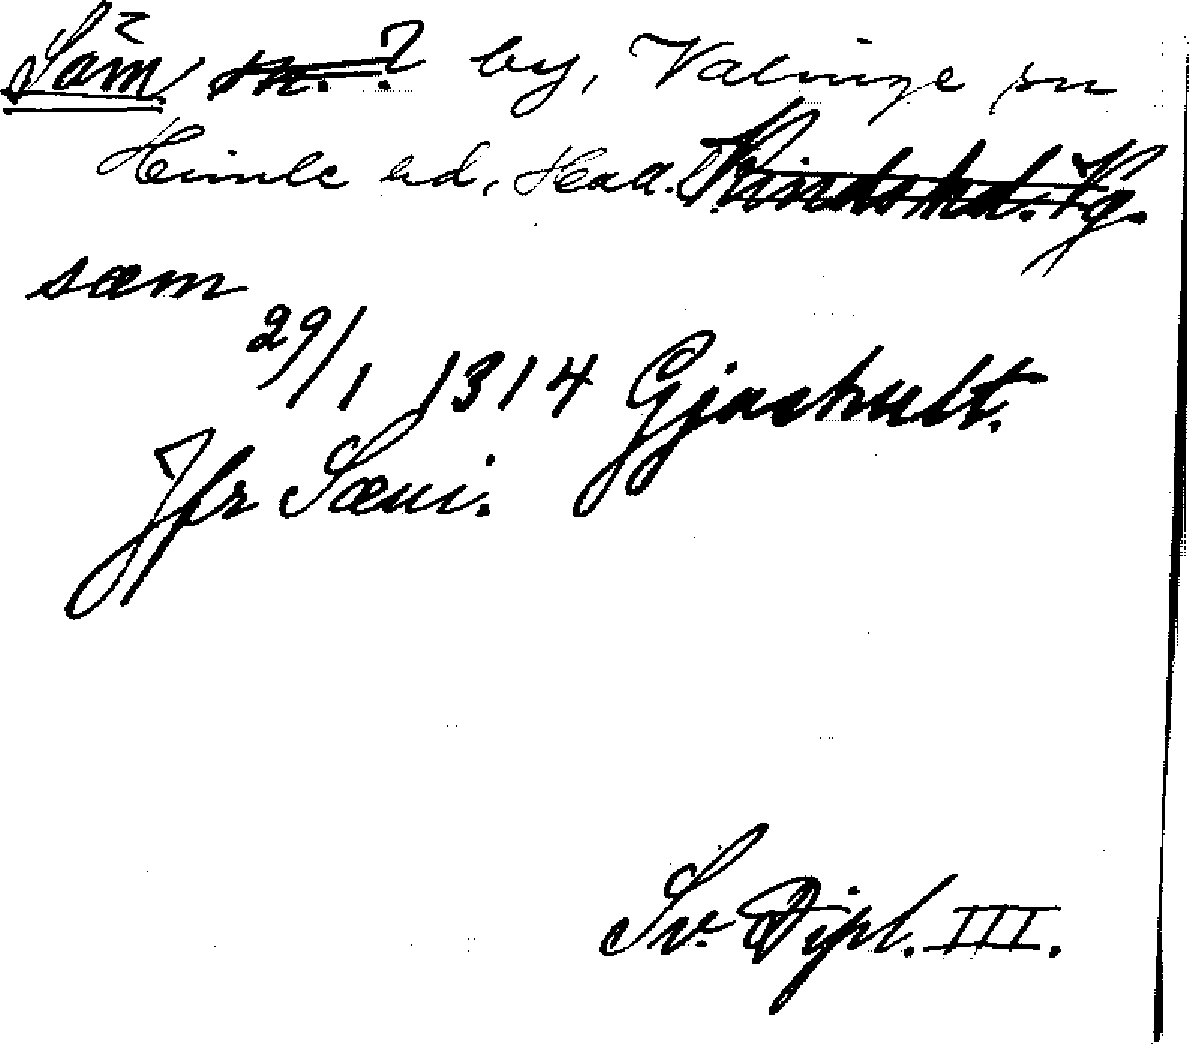 Säm sn. ? by, Valinge sn
Himle hd, Hall. Kinds hd. Vg.
sæm
29/1 1314 Gjashult.
Jfr Sæm.
Sv. Dipl. III.